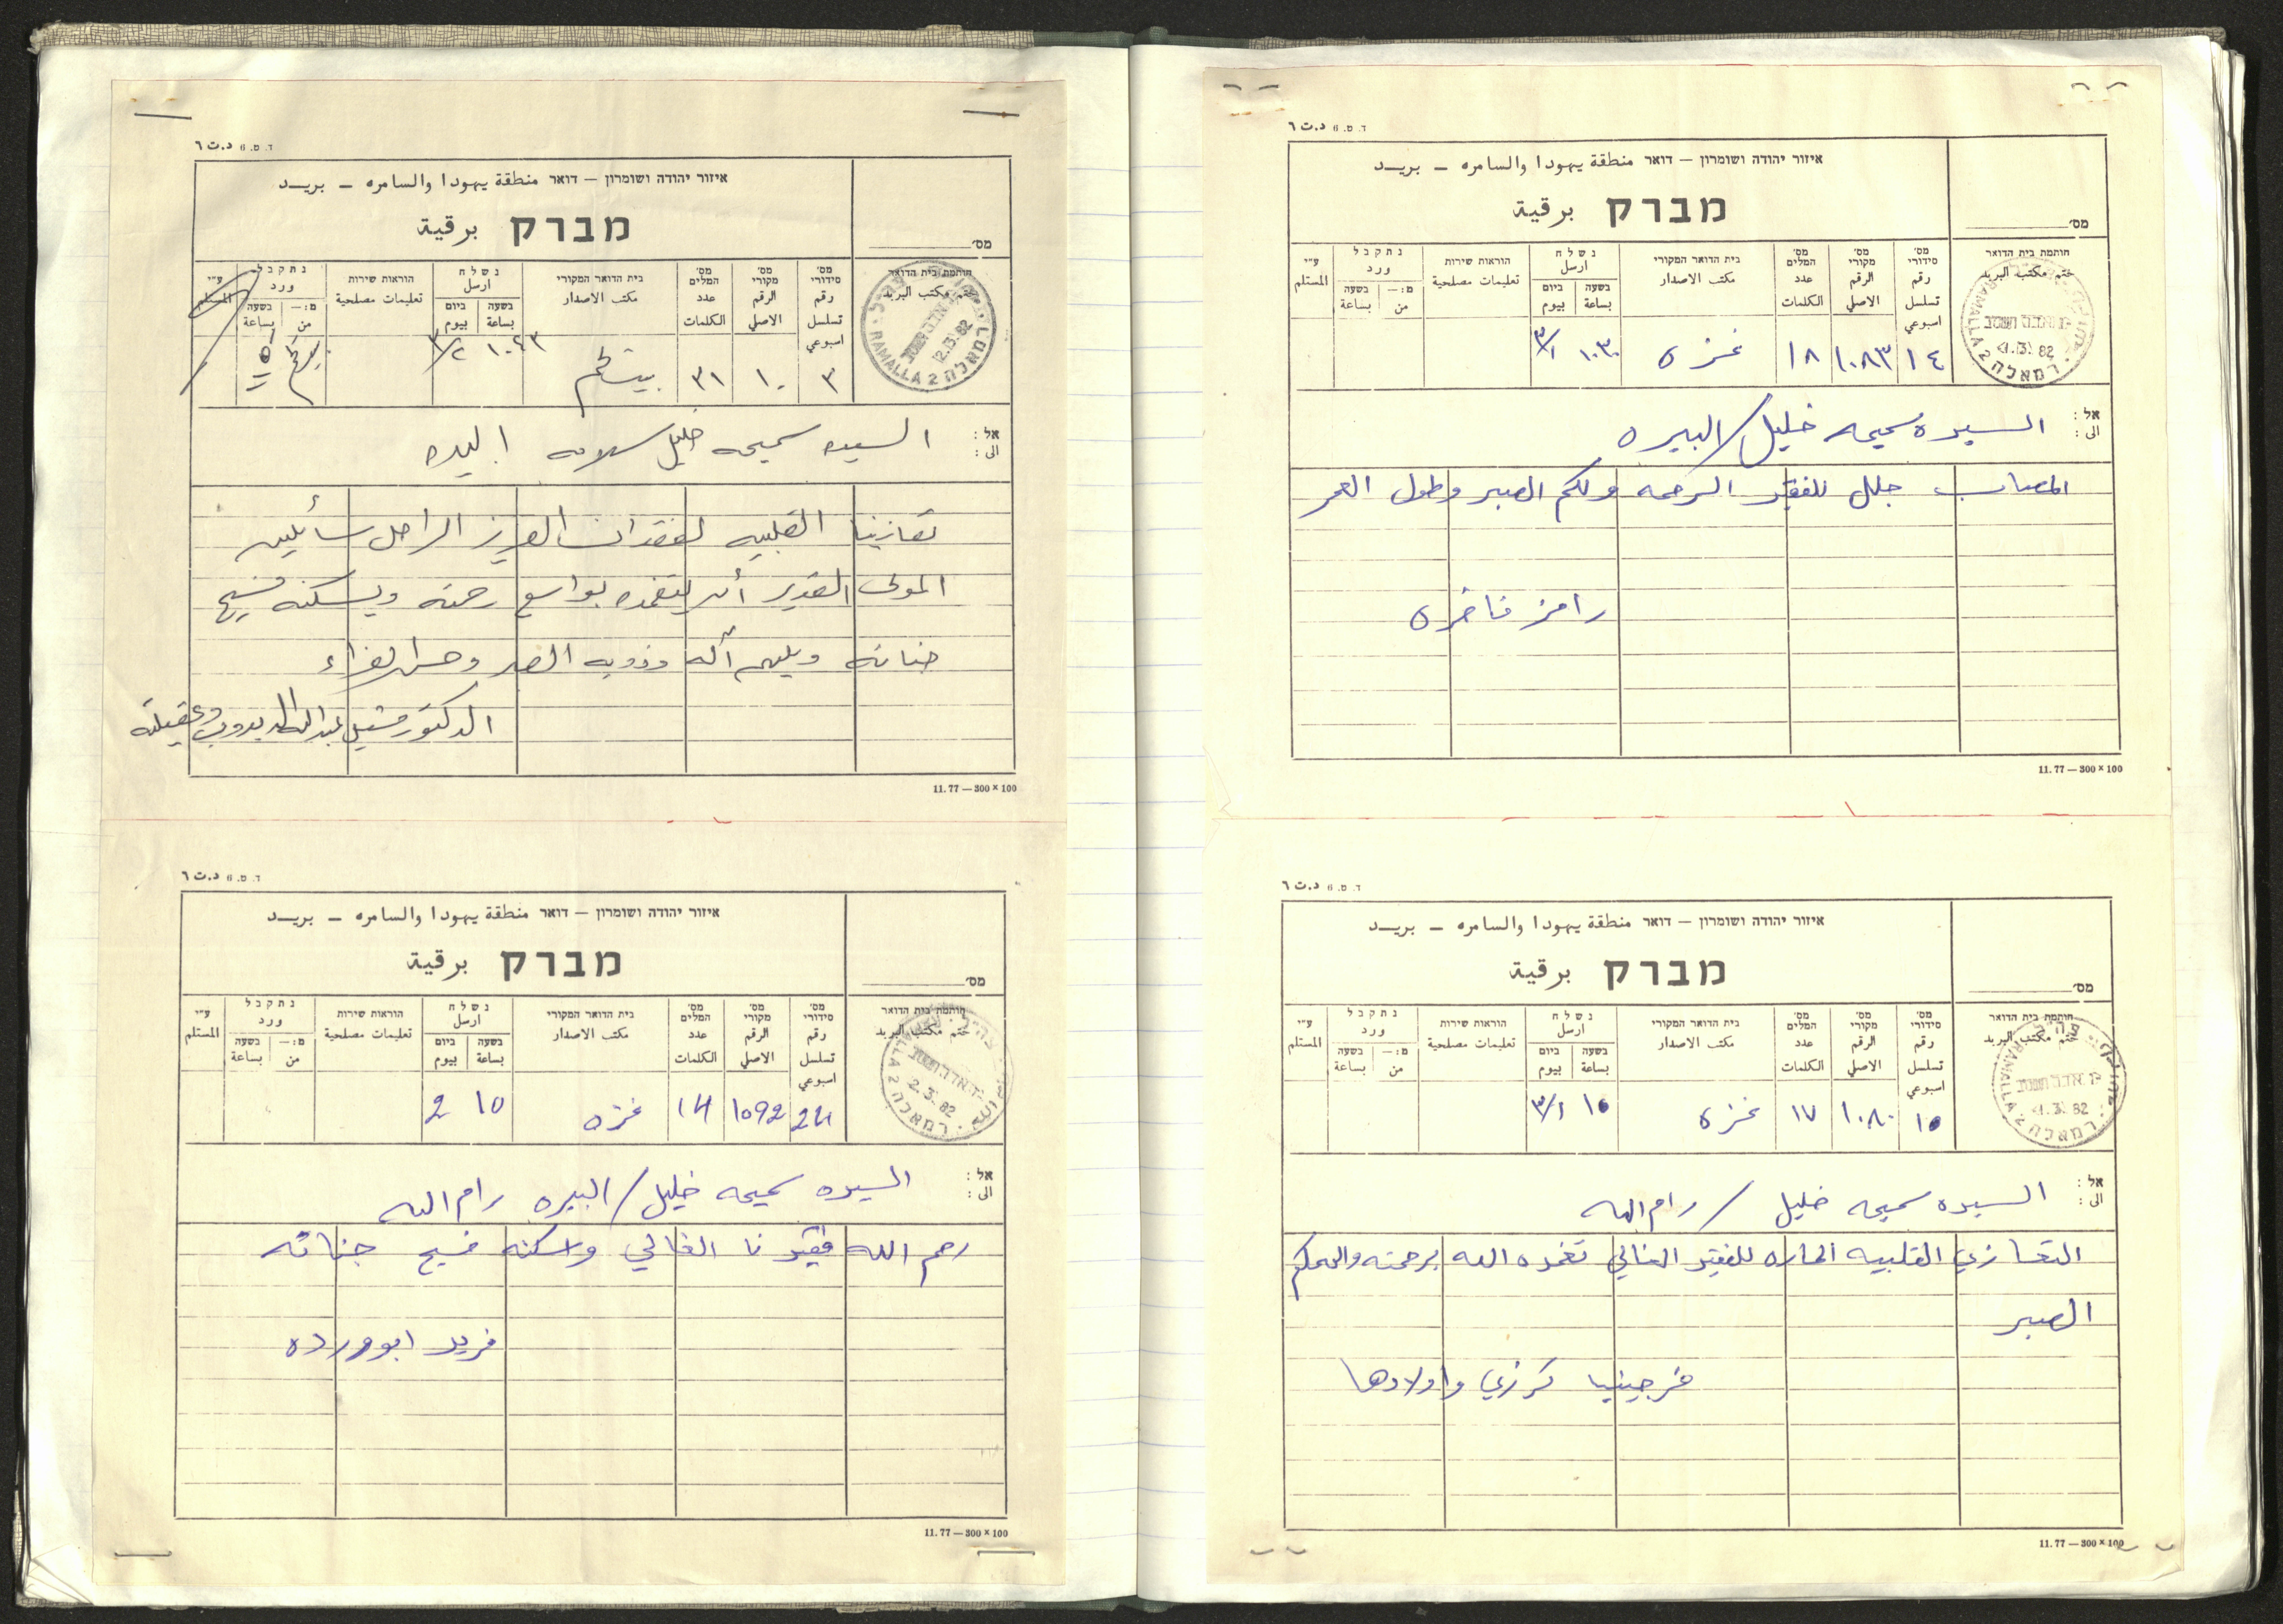 ד. ט. 6 د.ت ٦
איזור יהודה ושומרון — דואר منطقة يهودا والسامره — بريد
מברק برقية
מס׳
חותמת בית הדואר
ختم مكتب البريد
מס׳ סידורי
رقم تسلسل اسبوعي
מס׳ מקורי
الرقم الاصلي
מס׳ המלים
عدد الكلمات
בית הדואר המקורי
مكتب الاصدار
נשלח
ارسل
בשעה
بساعة
ביום
بيوم
הוראות שירות
تعليمات مصلحية
נתקבל
ورد
מ: —
من
בשעה
بساعة
ע״י
المستلم
RAMALLA 2 רמאלה
٣ ١٠ ٣١ بيتلحم ١٠٤٣ ٣/٢
אל :
الى :
السيده سميحه خليل سلامه البيره
تعازينا القلبيه لفقدان العزيز الراحل سائلين
المولى القدير أن يتغمده بواسع رحمته ويسكنه فسيح
جناته ويلهم آله وذويه الصبر وحسن العزاء
الدكتور وعقيلته
11.77 — 300 × 100
ד. ט. 6 د.ت ٦
איזור יהודה ושומרון — דואר منطقة يهودا والسامره — بريد
מברק برقية
מס׳
חותמת בית הדואר
ختم مكتب البريد
מס׳ סידורי
رقم تسلسل اسبوعي
מס׳ מקורי
الرقم الاصلي
מס׳ המלים
عدد الكلمات
בית הדואר המקורי
مكتب الاصدار
נשלח
ارسل
בשעה
بساعة
ביום
بيوم
הוראות שירות
تعليمات مصلحية
נתקבל
ورد
מ: —
من
בשעה
بساعة
ע״י
المستلم
2.3.82
רמאלה
24 1092 14 غزه 10 2
אל :
الى :
السيده سميحه خليل / البيره رام الله
رحم الله فقيدنا الغالي واسكنه فسيح جناته
فريد ابو ورده
11.77 — 300 × 100
ד. ט. 6 د.ت ٦
איזור יהודה ושומרון — דואר منطقة يهودا والسامره — بريد
מברק برقية
מס׳
חותמת בית הדואר
ختم مكتب البريد
מס׳ סידורי
رقم تسلسل اسبوعي
מס׳ מקורי
الرقم الاصلي
מס׳ המלים
عدد الكلمات
בית הדואר המקורי
مكتب الاصدار
נשלח
ارسل
בשעה
بساعة
ביום
بيوم
הוראות שירות
تعليمات مصلحية
נתקבל
ورد
מ: —
من
בשעה
بساعة
ע״י
المستلم
RAMALLA 2 רמאלה
1.3.82
١٤ ١٠٨٣ ١٨ غزه ١٠٣٠ ٣/١
אל :
الى :
السيده سميحه خليل / البيره
المصاب جلل للفقيد الرحمه ولكم الصبر وطول العمر
رامز فاخره
11.77 — 300 × 100
ד. ט. 6 د.ت ٦
איזור יהודה ושומרון — דואר منطقة يهودا والسامره — بريد
מברק برقية
מס׳
חותמת בית הדואר
ختم مكتب البريد
מס׳ סידורי
رقم تسلسل اسبوعي
מס׳ מקורי
الرقم الاصلي
מס׳ המלים
عدد الكلمات
בית הדואר המקורי
مكتب الاصدار
נשלח
ارسل
בשעה
بساعة
ביום
بيوم
הוראות שירות
تعليمات مصلحية
נתקבל
ورد
מ: —
من
בשעה
بساعة
ע״י
المستلم
RAMALLA 2 רמאלה
1.3.82
١٥ ١٠٨٠ ١٧ غزه ١٥ ٣/١
אל :
الى :
السيده سميحه خليل / رام الله
التعازي القلبيه الحاره للفقيد الغالي تغمده الله برحمته والهمكم
الصبر
فرجينيا كرزي واولادها
11.77 — 300 × 100